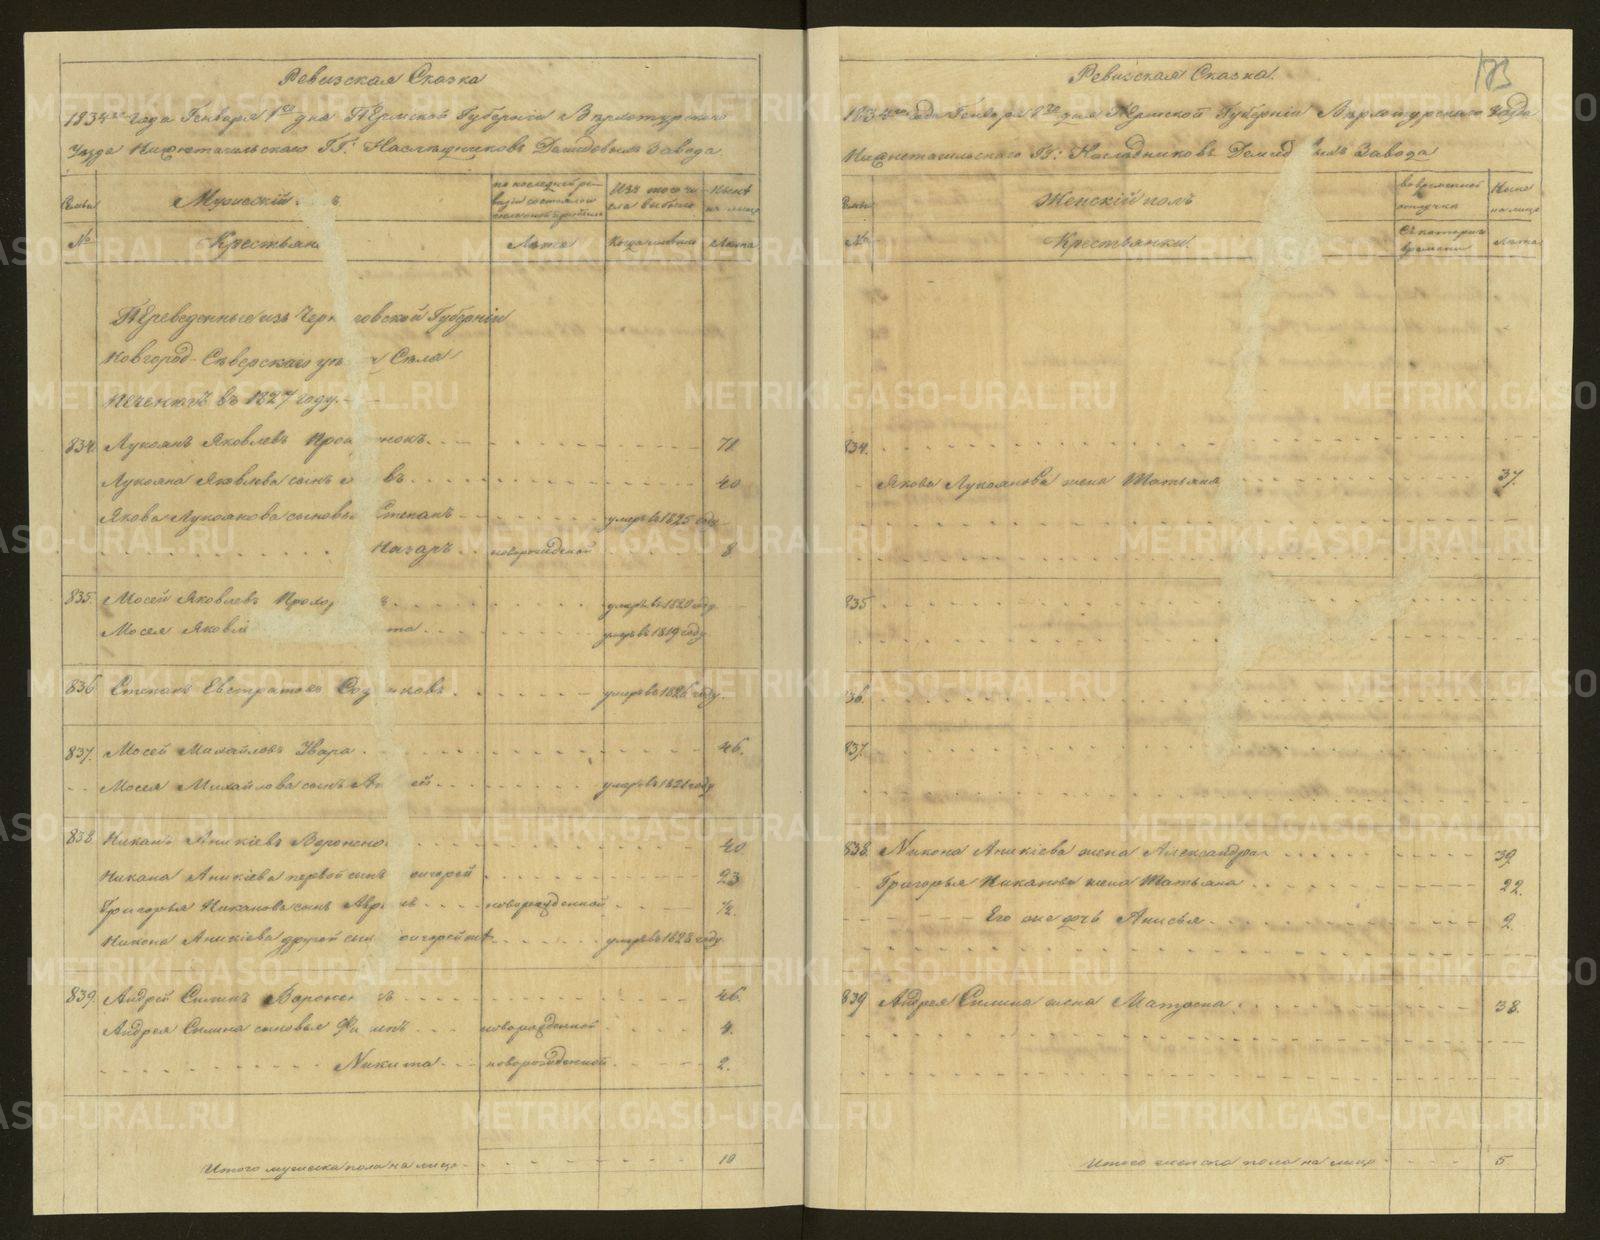 183
Ревизская Сказка
1834го года Генваря 1го дня Пермской Губерніи Верхотурского
Уезда Нижнетагильскаго ГГ: Наследниковъ Демидовыхъ Завода
Семьи Мужескій по последней ревизіи состояло и после оной прибыло Изъ того числа выбыло Ныне на лицо
№ Крестьян Лета Когда именно Лета
Переведенные изъ Чер говской Губерніи
Новгород-Северскаго Села
в 1827 году.
834. Лукоянъ Яковлевъ 78
Лукояна Яковлева сынъ въ 40
Якова Лукоянова сыновья Степанъ умеръ в 1825 году
Назаръ новорожденной 8
835. Мосей Яковлевъ Прохор умеръ в 1820 году
Мосея Яковл та умеръ в 1819 году
836 Степанъ Евстратовъ умеръ в 1826 году
837. Мосей Михайловъ Увара 46.
Мосея Михайлова сынъ ей умеръ в 1821 году
838 Никанъ Аникіевъ Вороненко 40
Никана Аникіева первой сынъ игорей 23
Григорья Никановъ сынъ новорожденной ½.
Никона Аникіева другой сын умеръ в 1828 году
839. Андрей Силинъ Воронен 46.
Андрея Силина сыновья Фи ипъ новорожденной 4.
Никита новорожденной 2.
Итого мужеска пола на лицо 10
Ревизская Сказка.
1834го года Генваря 1го дня Пермской Губерніи Верхотурскаго Уезда
Нижнетагильскаго ГГ: Наследниковъ Демид ыхъ Завода
Семьи Женскій полъ во временной отлучке Ныне на лицо
№ Крестьянки. Съ котораго времени Лета
834.
Якова Лукоянова жена Татьяна 37.
835
36.
837.
838. Никона Аникіева жена Александра 39
Григорья Никанова жена Татьяна 22.
Его же дочь Анисья 2.
839 Андрея Силина жена Матрона 38.
Итого женска пола на лицо 5
METRIKI.GASO-URAL.RU